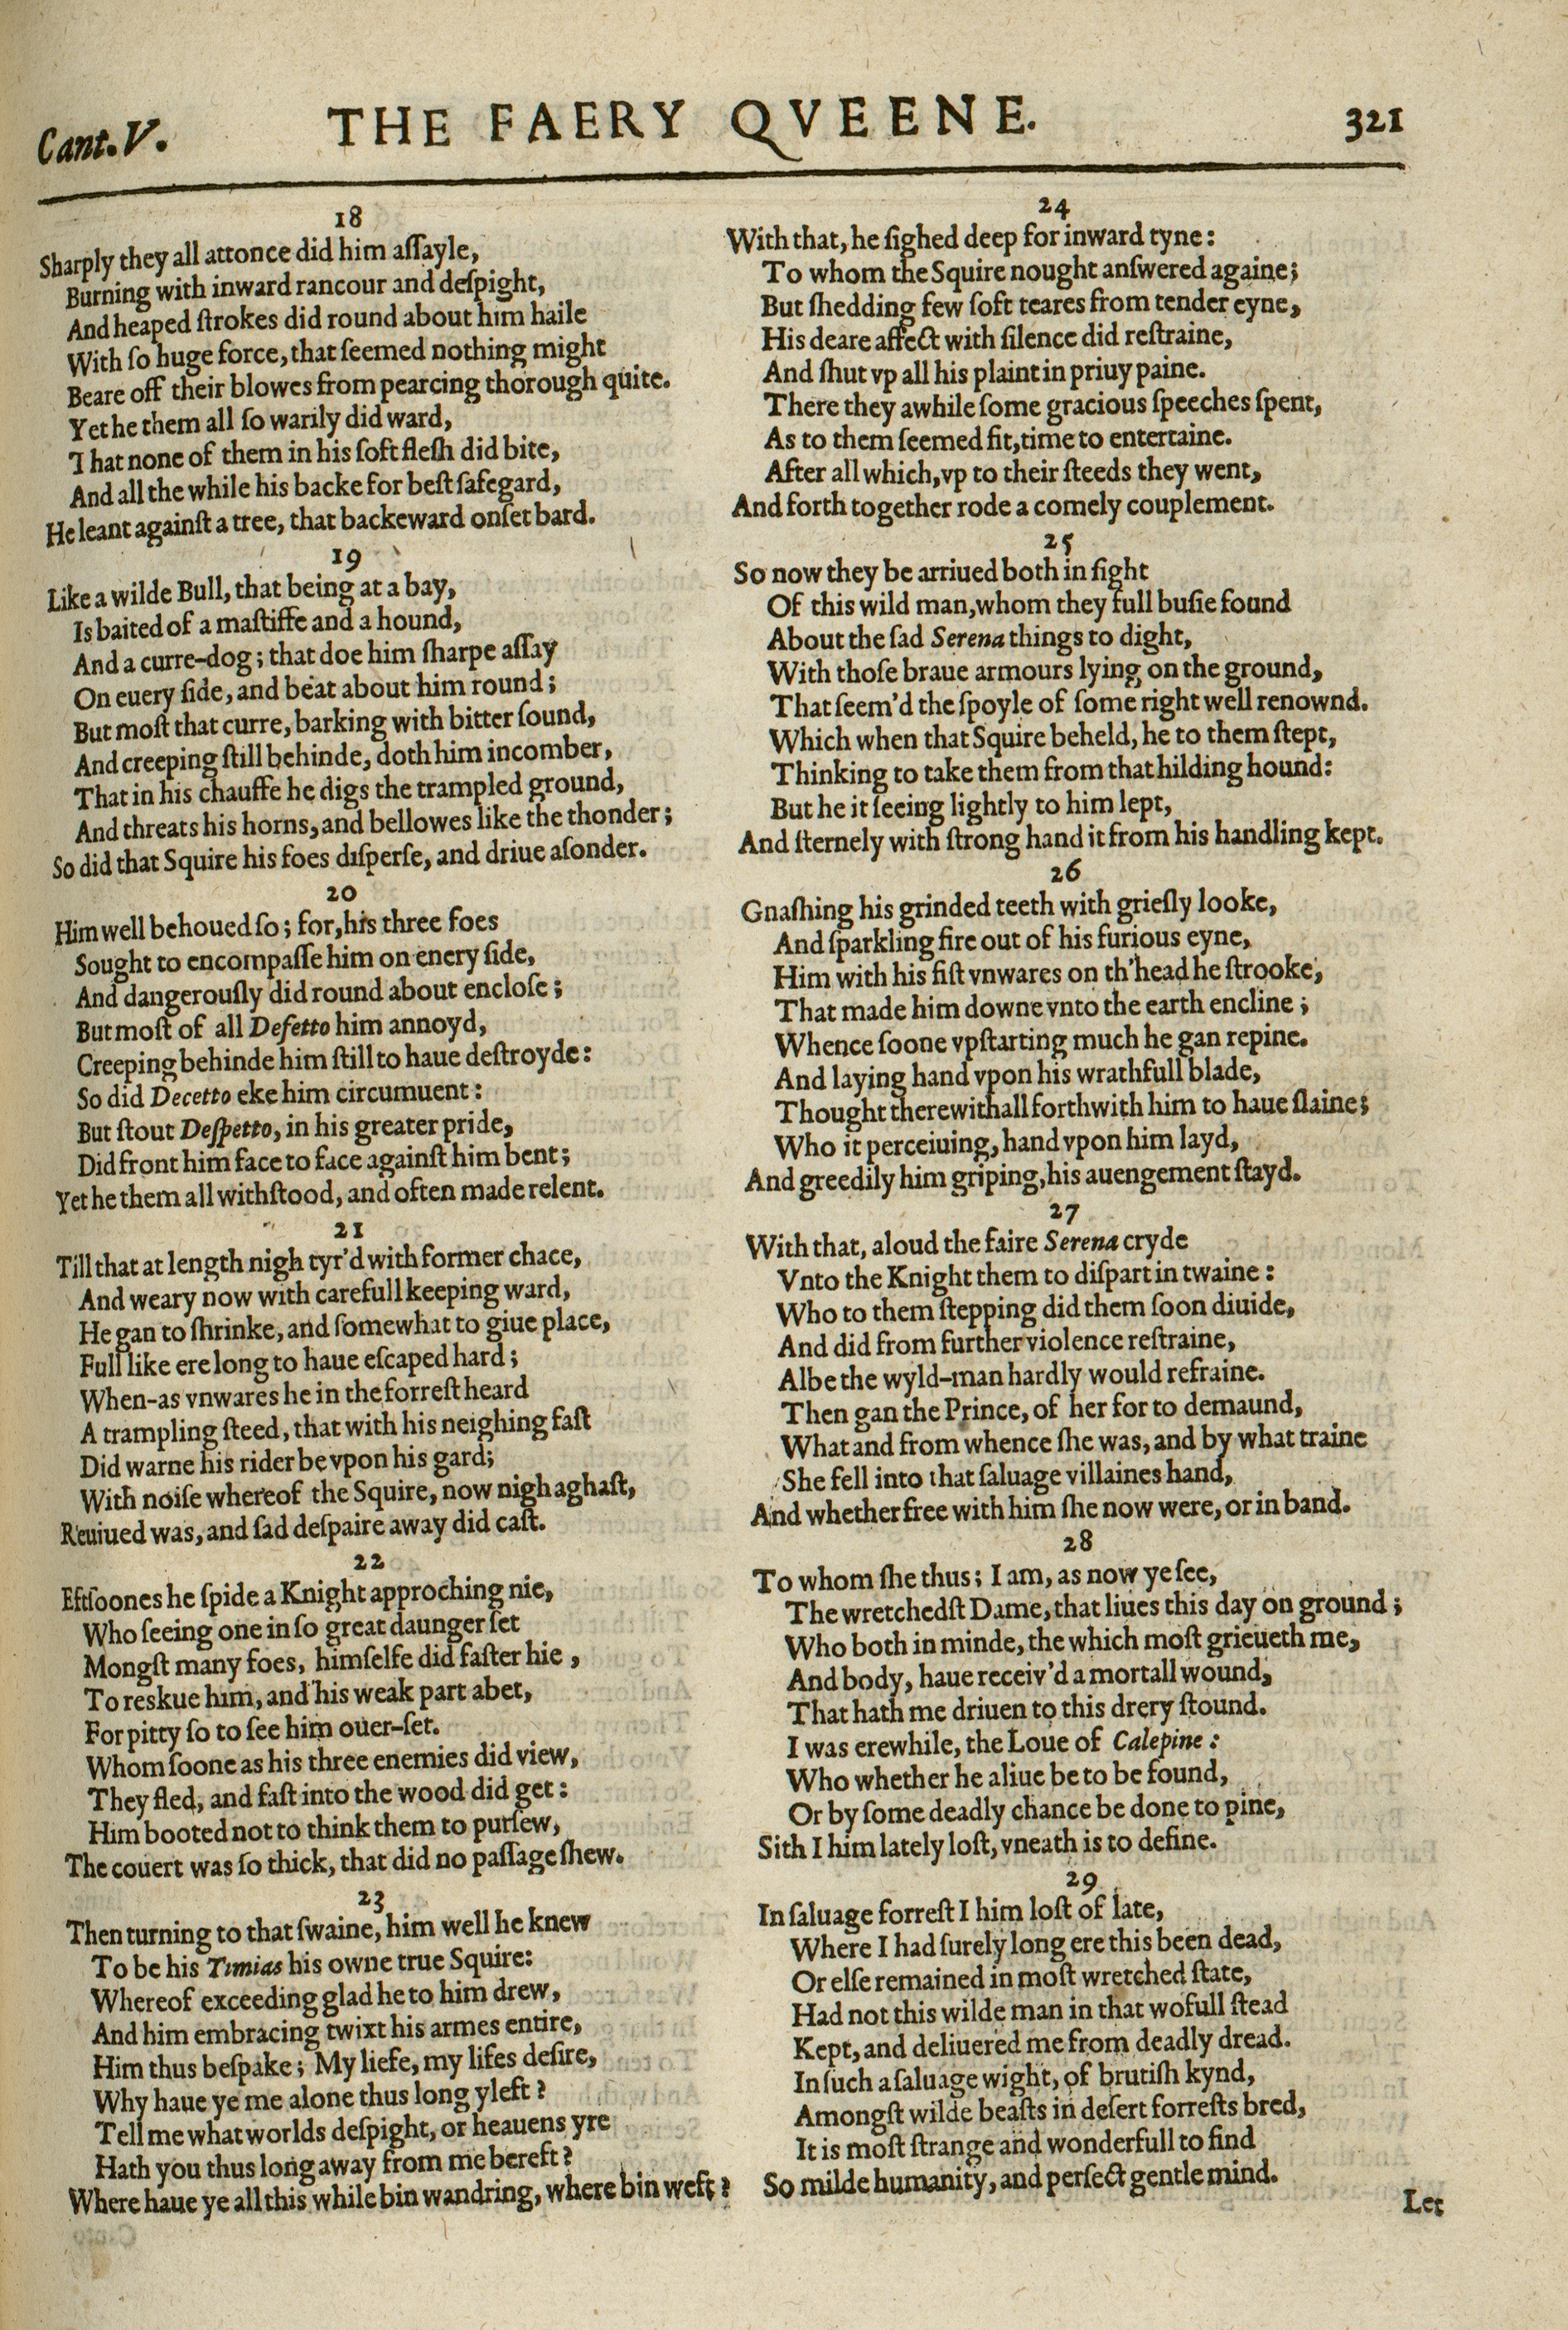 Cant. V.
THE FAERY QVEENE.
321
18
Sharply they all attonce did him aſſayle,
Burning with inward rancour and deſpight,
And heaped ſtrokes did round about him haile
With ſo huge force, that ſeemed nothing might
Beare off their blowes from pearcing thorough quite.
Yet he them all ſo warily did ward,
That none of them in his ſoft fleſh did bite,
And all the while his backe for beſt ſafegard,
He leant againſt a tree, that backeward onſet bard.
19
Like a wilde Bull, that being at a bay,
Is baited of a maſtiffe and a hound,
And a curre-dog; that doe him ſharpe aſſay
On euery ſide, and beat about him round;
But moſt that curre, barking with bitter ſound,
And creeping ſtill behinde, doth him incomber,
That in his chauffe he digs the trampled ground,
And threats his horns, and bellowes like the thonder;
So did that Squire his foes diſperſe, and driue aſonder.
20
Him well behoued ſo; for, his three foes
Sought to encompaſſe him on enery ſide,
And dangerouſly did round about encloſe;
But moſt of all Defetto him annoyd,
Creeping behinde him ſtill to haue deſtroyde:
So did Decetto eke him circumuent:
But ſtout Deſpetto, in his greater pride,
Did front him face to face againſt him bent;
Yet he them all withſtood, and often made relent.
21
Till that at length nigh tyr'd with former chace,
And weary now with carefull keeping ward,
He gan to ſhrinke, and ſomewhat to giue place,
Full like ere long to haue eſcaped hard;
When-as vnwares he in the forreſt heard
A trampling ſteed, that with his neighing faſt
Did warne his rider be vpon his gard;
With noiſe whereof the Squire, now nigh aghaſt,
Reuiued was, and ſad deſpaire away did caſt.
22
Eftſoones he ſpide a Knight approching nie,
Who ſeeing one in ſo great daunger ſet
Mongſt many foes, himſelfe did faſter hie,
To reskue him, and his weak part abet,
For pitty ſo to ſee him ouer-ſet.
Whom ſoone as his three enemies did view,
They fled, and faſt into the wood did get:
Him booted not to think them to purſew,
The couert was ſo thick, that did no paſſage ſhew.
23
Then turning to that ſwaine, him well he knew
To be his Timias his owne true Squire:
Whereof exceeding glad he to him drew,
And him embracing twixt his armes entire,
Him thus beſpake; My liefe, my lifes deſire,
Why haue ye me alone thus long yleft?
Tell me what worlds deſpight, or heauens yre
Hath you thus long away from me bereft?
Where haue ye all this while bin wandring, where bin weft?
24
With that, he ſighed deep for inward tyne:
To whom the Squire nought anſwered againe;
But ſhedding few ſoft teares from tender eyne,
His deare affect with ſilence did reſtraine,
And ſhut vp all his plaint in priuy paine.
There they awhile ſome gracious ſpeeches ſpent,
As to them ſeemed fit, time to entertaine.
After all which, vp to their ſteeds they went,
And forth together rode a comely couplement.
25
So now they be arriued both in ſight
Of this wild man, whom they full buſie found
About the ſad Serena things to dight,
With thoſe braue armours lying on the ground,
That ſeem'd the ſpoyle of ſome right well renownd.
Which when that Squire beheld, he to them ſtept,
Thinking to take them from that hilding hound:
But he it ſeeing lightly to him lept,
And ſternely with ſtrong hand it from his handling kept.
26
Gnaſhing his grinded teeth with grieſly looke,
And ſparkling fire out of his furious eyne,
Him with his fiſt vnwares on th'head he ſtrooke,
That made him downe vnto the earth encline;
Whence ſoone vpſtarting much he gan repine.
And laying hand vpon his wrathfull blade,
Thought therewithall forthwith him to haue ſlaine;
Who it perceiuing, hand vpon him layd,
And greedily him griping, his auengement ſtayd.
27
With that, aloud the faire Serena cryde
Vnto the Knight them to diſpart in twaine:
Who to them ſtepping did them ſoon diuide,
And did from further violence reſtraine,
Albe the wyld-man hardly would refraine.
Then gan the Prince, of her for to demaund,
What and from whence ſhe was, and by what traine
She fell into that ſaluage villaines hand,
And whether free with him ſhe now were, or in band.
28
To whom ſhe thus; I am, as now ye ſee,
The wretchedſt Dame, that liues this day on ground;
Who both in minde, the which moſt grieueth me,
And body, haue receiv'd a mortall wound,
That hath me driuen to this drery ſtound.
I was erewhile, the Loue of Calepine:
Who whether he aliue be to be found,
Or by ſome deadly chance be done to pine,
Sith I him lately loſt, vneath is to define.
29
In ſaluage forreſt I him loſt of late,
Where I had ſurely long ere this been dead,
Or elſe remained in moſt wretched ſtate,
Had not this wilde man in that wofull ſtead
Kept, and deliuered me from deadly dread.
In ſuch a ſaluage wight, of brutiſh kynd,
Amongſt wilde beaſts in deſert forreſts bred,
It is moſt ſtrange and wonderfull to find
So milde humanity, and perfect gentle mind.
Let